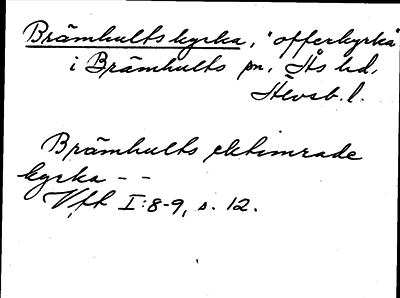 Brämhults kyrka, "offerkyrka"
i Brämhults sn, Ås hd,
Älvsb. l.
Brämhults ektimrade
kyrka - -
Vft I:8-9, s. 12.